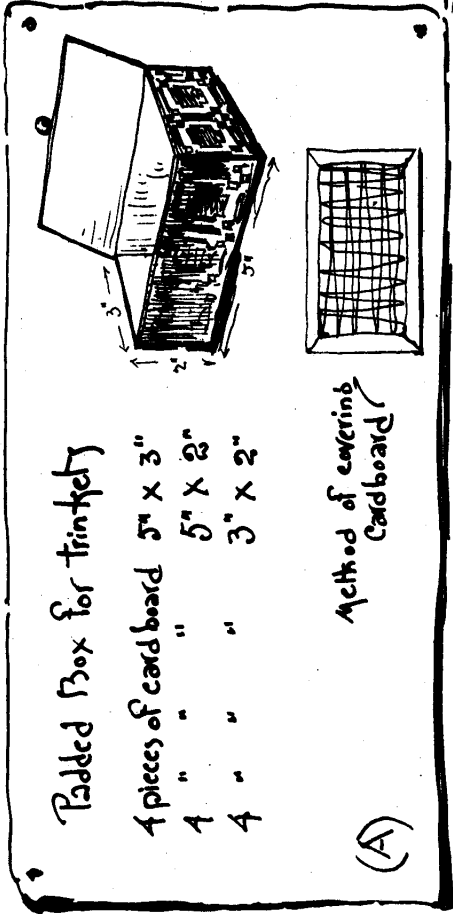 Padded Box for trinkets
4 pieces of cardboard 5" X 3"
4 " " " 5" X 2"
4 " " " 3" X 2"
3"
2"
5"
Method of covering
Cardboard
(A)